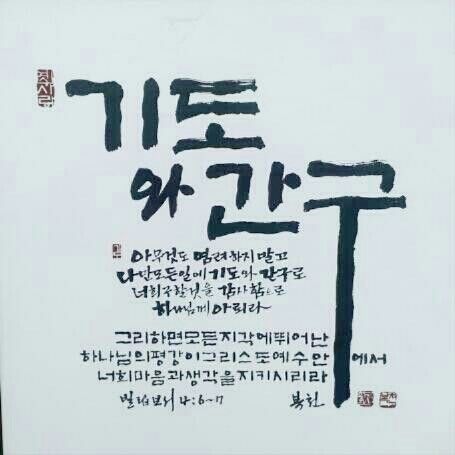 첫사랑
기도
와 간구
아무것도 염려하지 말고
다만 모든 일에 기도와 간구로
너희 구할 것을 감사함으로
하나님께 아뢰라
그리하면모든지각에뛰어난
하나님의평강이그리스도예수안에서
너희마음과생각을지키시리라
빌립보서 4:6~7